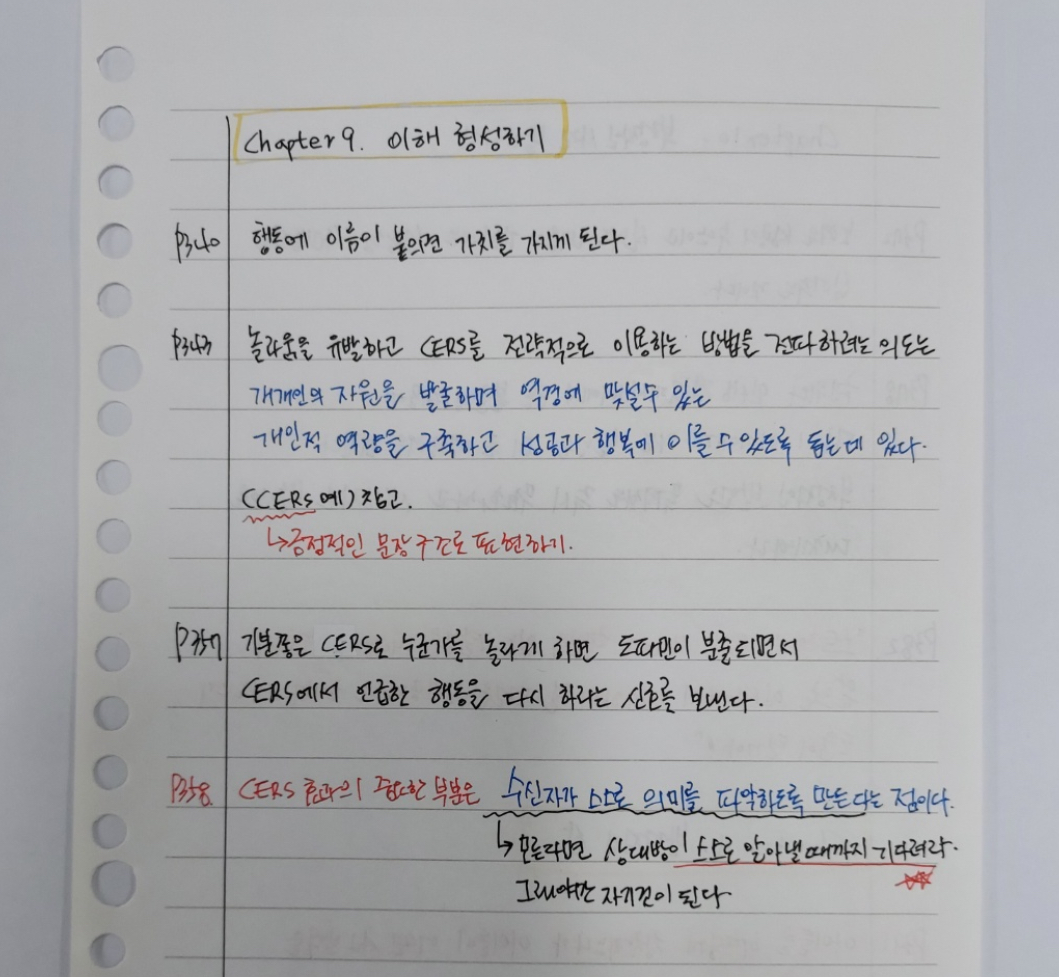 Chapter 9. 이해 형성하기
P340 행동에 이름이 붙으면 가치를 가지게 된다.
P343 놀라움을 유발하고 CERS를 전략적으로 이용하는 방법을 전파하려는 의도는
개개인의 자원을 발굴하며 역경에 맞설수 있는
개인적 역량을 구축하고 성공과 행복에 이를 수 있도록 돕는데 있다.
(CERS 예) 참고.
↳긍정적인 문장구조로 표현하기.
P357 기분좋은 CERS로 누군가를 놀라게 하면 도파민이 분출되면서
CERS에서 언급한 행동을 다시 하라는 신호를 보낸다.
P358 CERS 효과의 중요한 부분은 수신자가 스스로 의미를 파악하도록 만든다는 점이다.
↳모른다면 상대방이 스스로 알아낼때까지 기다려라.
그래야만 자기것이 된다